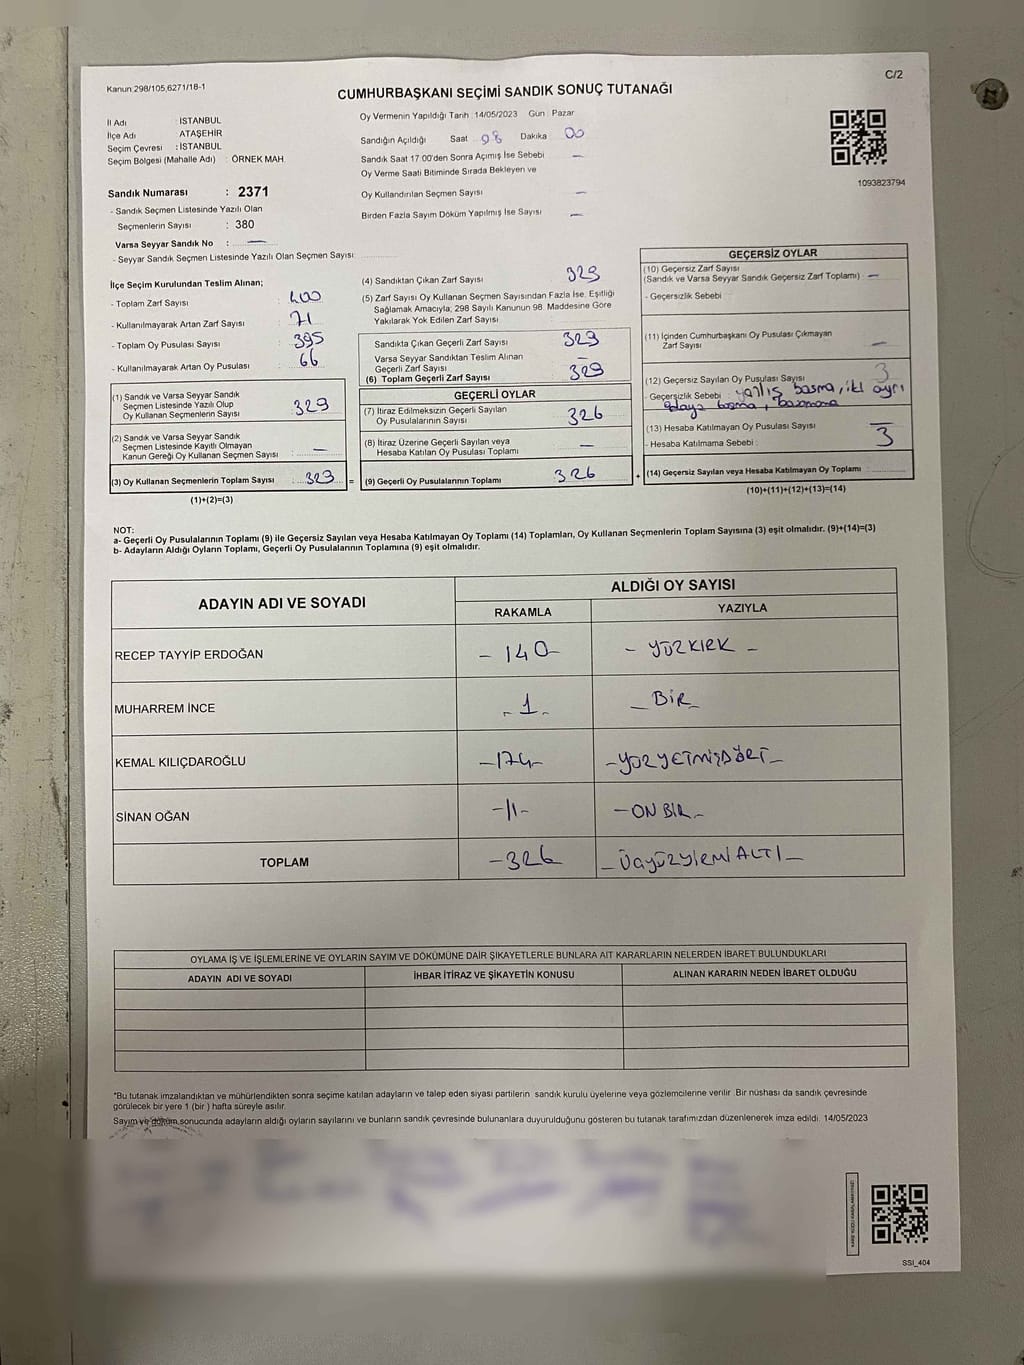 Kanun:298/105,6271/18-1
C/2
CUMHURBAŞKANI SEÇİMİ SANDIK SONUÇ TUTANAĞI
İl Adı : İSTANBUL
İlçe Adı : ATAŞEHİR
Seçim Çevresi : İSTANBUL
Seçim Bölgesi (Mahalle Adı) : ÖRNEK MAH.
Sandık Numarası : 2371
- Sandık Seçmen Listesinde Yazılı Olan
Seçmenlerin Sayısı : 380
Varsa Seyyar Sandık No : —
- Seyyar Sandık Seçmen Listesinde Yazılı Olan Seçmen Sayısı:
Oy Vermenin Yapıldığı Tarih : 14/05/2023 Gün : Pazar
Sandığın Açıldığı Saat 08 Dakika 00
Sandık Saat 17:00'den Sonra Açımış İse Sebebi —
Oy Verme Saati Bitiminde Sırada Bekleyen ve
Oy Kullandırılan Seçmen Sayısı —
Birden Fazla Sayım Döküm Yapılmış İse Sayısı —
1093823794
İlçe Seçim Kurulundan Teslim Alınan;
- Toplam Zarf Sayısı : 400
- Kullanılmayarak Artan Zarf Sayısı : 71
- Toplam Oy Pusulası Sayısı : 395
- Kullanılmayarak Artan Oy Pusulası : 66
(1) Sandık ve Varsa Seyyar Sandık
Seçmen Listesinde Yazılı Olup
Oy Kullanan Seçmenlerin Sayısı : 329
(2) Sandık ve Varsa Seyyar Sandık
Seçmen Listesinde Kayıtlı Olmayan
Kanun Gereği Oy Kullanan Seçmen Sayısı : —
(3) Oy Kullanan Seçmenlerin Toplam Sayısı : 329 =
(1)+(2)=(3)
(4) Sandıktan Çıkan Zarf Sayısı 329
(5) Zarf Sayısı Oy Kullanan Seçmen Sayısından Fazla İse, Eşitliği
Sağlamak Amacıyla; 298 Sayılı Kanunun 98. Maddesine Göre
Yakılarak Yok Edilen Zarf Sayısı
Sandıkta Çıkan Geçerli Zarf Sayısı 329
Varsa Seyyar Sandıktan Teslim Alınan
Geçerli Zarf Sayısı —
(6) Toplam Geçerli Zarf Sayısı 329
GEÇERLİ OYLAR
(7) İtiraz Edilmeksizin Geçerli Sayılan
Oy Pusulalarının Sayısı 326
(8) İtiraz Üzerine Geçerli Sayılan veya
Hesaba Katılan Oy Pusulası Toplamı —
(9) Geçerli Oy Pusulalarının Toplamı 326 +
GEÇERSİZ OYLAR
(10) Geçersiz Zarf Sayısı
(Sandık ve Varsa Seyyar Sandık Geçersiz Zarf Toplamı) : —
- Geçersizlik Sebebi :
(11) İçinden Cumhurbaşkanı Oy Pusulası Çıkmayan
Zarf Sayısı —
(12) Geçersiz Sayılan Oy Pusulası Sayısı 3
- Geçersizlik Sebebi : yanlış basma, iki ayrı
adaya basma, basmama
(13) Hesaba Katılmayan Oy Pusulası Sayısı —
- Hesaba Katılmama Sebebi : 3
(14) Geçersiz Sayılan veya Hesaba Katılmayan Oy Toplamı :
(10)+(11)+(12)+(13)=(14)
NOT:
a- Geçerli Oy Pusulalarının Toplamı (9) ile Geçersiz Sayılan veya Hesaba Katılmayan Oy Toplamı (14) Toplamları, Oy Kullanan Seçmenlerin Toplam Sayısına (3) eşit olmalıdır. (9)+(14)=(3)
b- Adayların Aldığı Oyların Toplamı, Geçerli Oy Pusulalarının Toplamına (9) eşit olmalıdır.
ADAYIN ADI VE SOYADI
ALDIĞI OY SAYISI
RAKAMLA YAZIYLA
RECEP TAYYİP ERDOĞAN - 140 - - YÜZKIRK -
MUHARREM İNCE - 1 - - BİR -
KEMAL KILIÇDAROĞLU - 174 - - YÜZYETMİŞDÖRT -
SİNAN OĞAN - 11 - - ON BİR -
TOPLAM - 326 - ÜÇYÜZYİRMİALTI -
OYLAMA İŞ VE İŞLEMLERİNE VE OYLARIN SAYIM VE DÖKÜMÜNE DAİR ŞİKAYETLERLE BUNLARA AİT KARARLARIN NELERDEN İBARET BULUNDUKLARI
ADAYIN ADI VE SOYADI İHBAR İTİRAZ VE ŞİKAYETİN KONUSU ALINAN KARARIN NEDEN İBARET OLDUĞU
*Bu tutanak imzalandıktan ve mühürlendikten sonra seçime katılan adayların ve talep eden siyasi partilerin sandık kurulu üyelerine veya gözlemcilerine verilir. Bir nüshası da sandık çevresinde
görülecek bir yere 1 (bir ) hafta süreyle asılır.
Sayım ve döküm sonucunda adayların aldığı oyların sayılarını ve bunların sandık çevresinde bulunanlara duyurulduğunu gösteren bu tutanak tarafımızdan düzenlenerek imza edildi. 14/05/2023
SSI_404